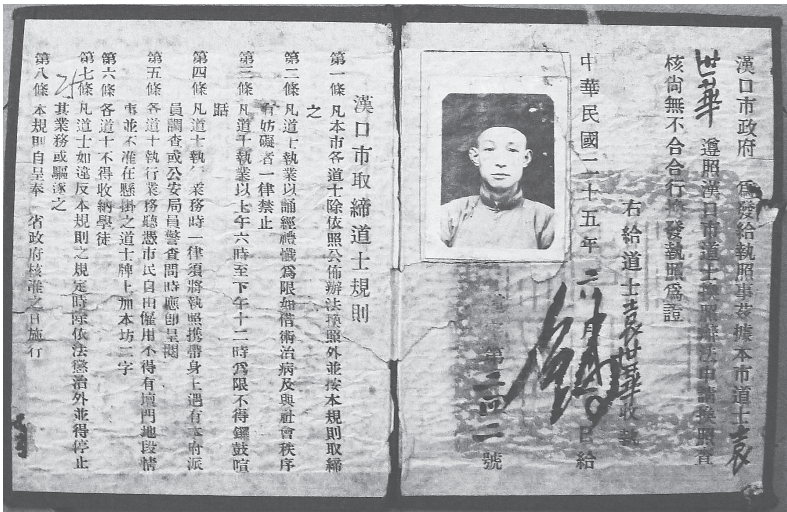 漢口市政府 為發給執照事茲據本市道士袁
世華 遵照漢口市道士換照辦法申請換照查
核尚無不合合行換發執照為證
右給道士袁世華收執
中華民國二十五年 月 給
第二四二號
漢口市取締道士規則
第一條 凡本市各道士除依照公佈辦法換照外並按本規則取締
之
第二條 凡道士執業以誦經禮懺為限如借術治病及與社會秩序
有妨礙者一律禁止
第三條 凡道士執業以上午六時至下午十二時為限不得鑼鼓喧
聒
第四條 凡道士執行業務時一律須將執照携帶身上遇有本府派
員調查或公安局員警查問時應即呈閱
第五條 各道士執行業務聽憑市民自由僱用不得有壇門地段情
事並不准在懸掛之道士牌上加本坊二字
第六條 各道士不得收納學徒
第七條 凡道士如違反本規則之規定時除依法懲治外並得停止
其業務或驅逐之
第八條 本規則自呈奉 省政府核准之日施行